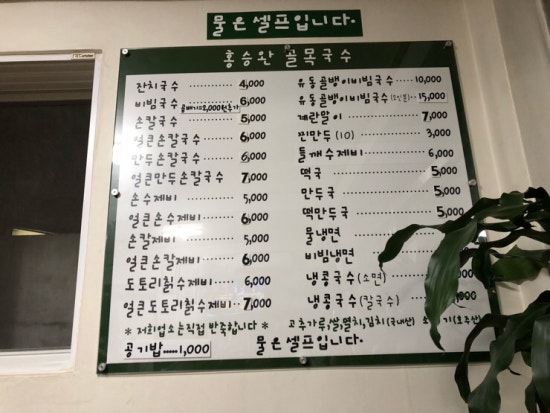 물은 셀프입니다.
홍승완 골목국수
잔치국수 4,000
비빔국수 6,000
손칼국수 5,000
얼큰손칼국수 6,000
만두손칼국수 6,000
얼큰만두손칼국수 7,000
손수제비 5,000
얼큰손수제비 6,000
손칼제비 5,000
얼큰손칼제비 6,000
도토리칡수제비 6,000
얼큰도토리칡수제비 7,000
*저희업소는직접 반죽합니다*
공기밥 1,000
유동골뱅이비빔국수 10,000
유동골뱅이비빔국수 15,000
계란말이 7,000
찐만두(10) 3,000
들깨수제비 6,000
떡국 5,000
만두국 5,000
떡만두국 5,000
물냉면
비빔냉면
냉콩국수(소면)
냉콩국수(칼국수)
고추가루,쌀,멸치,김치(국내산)
물은 셀프입니다.